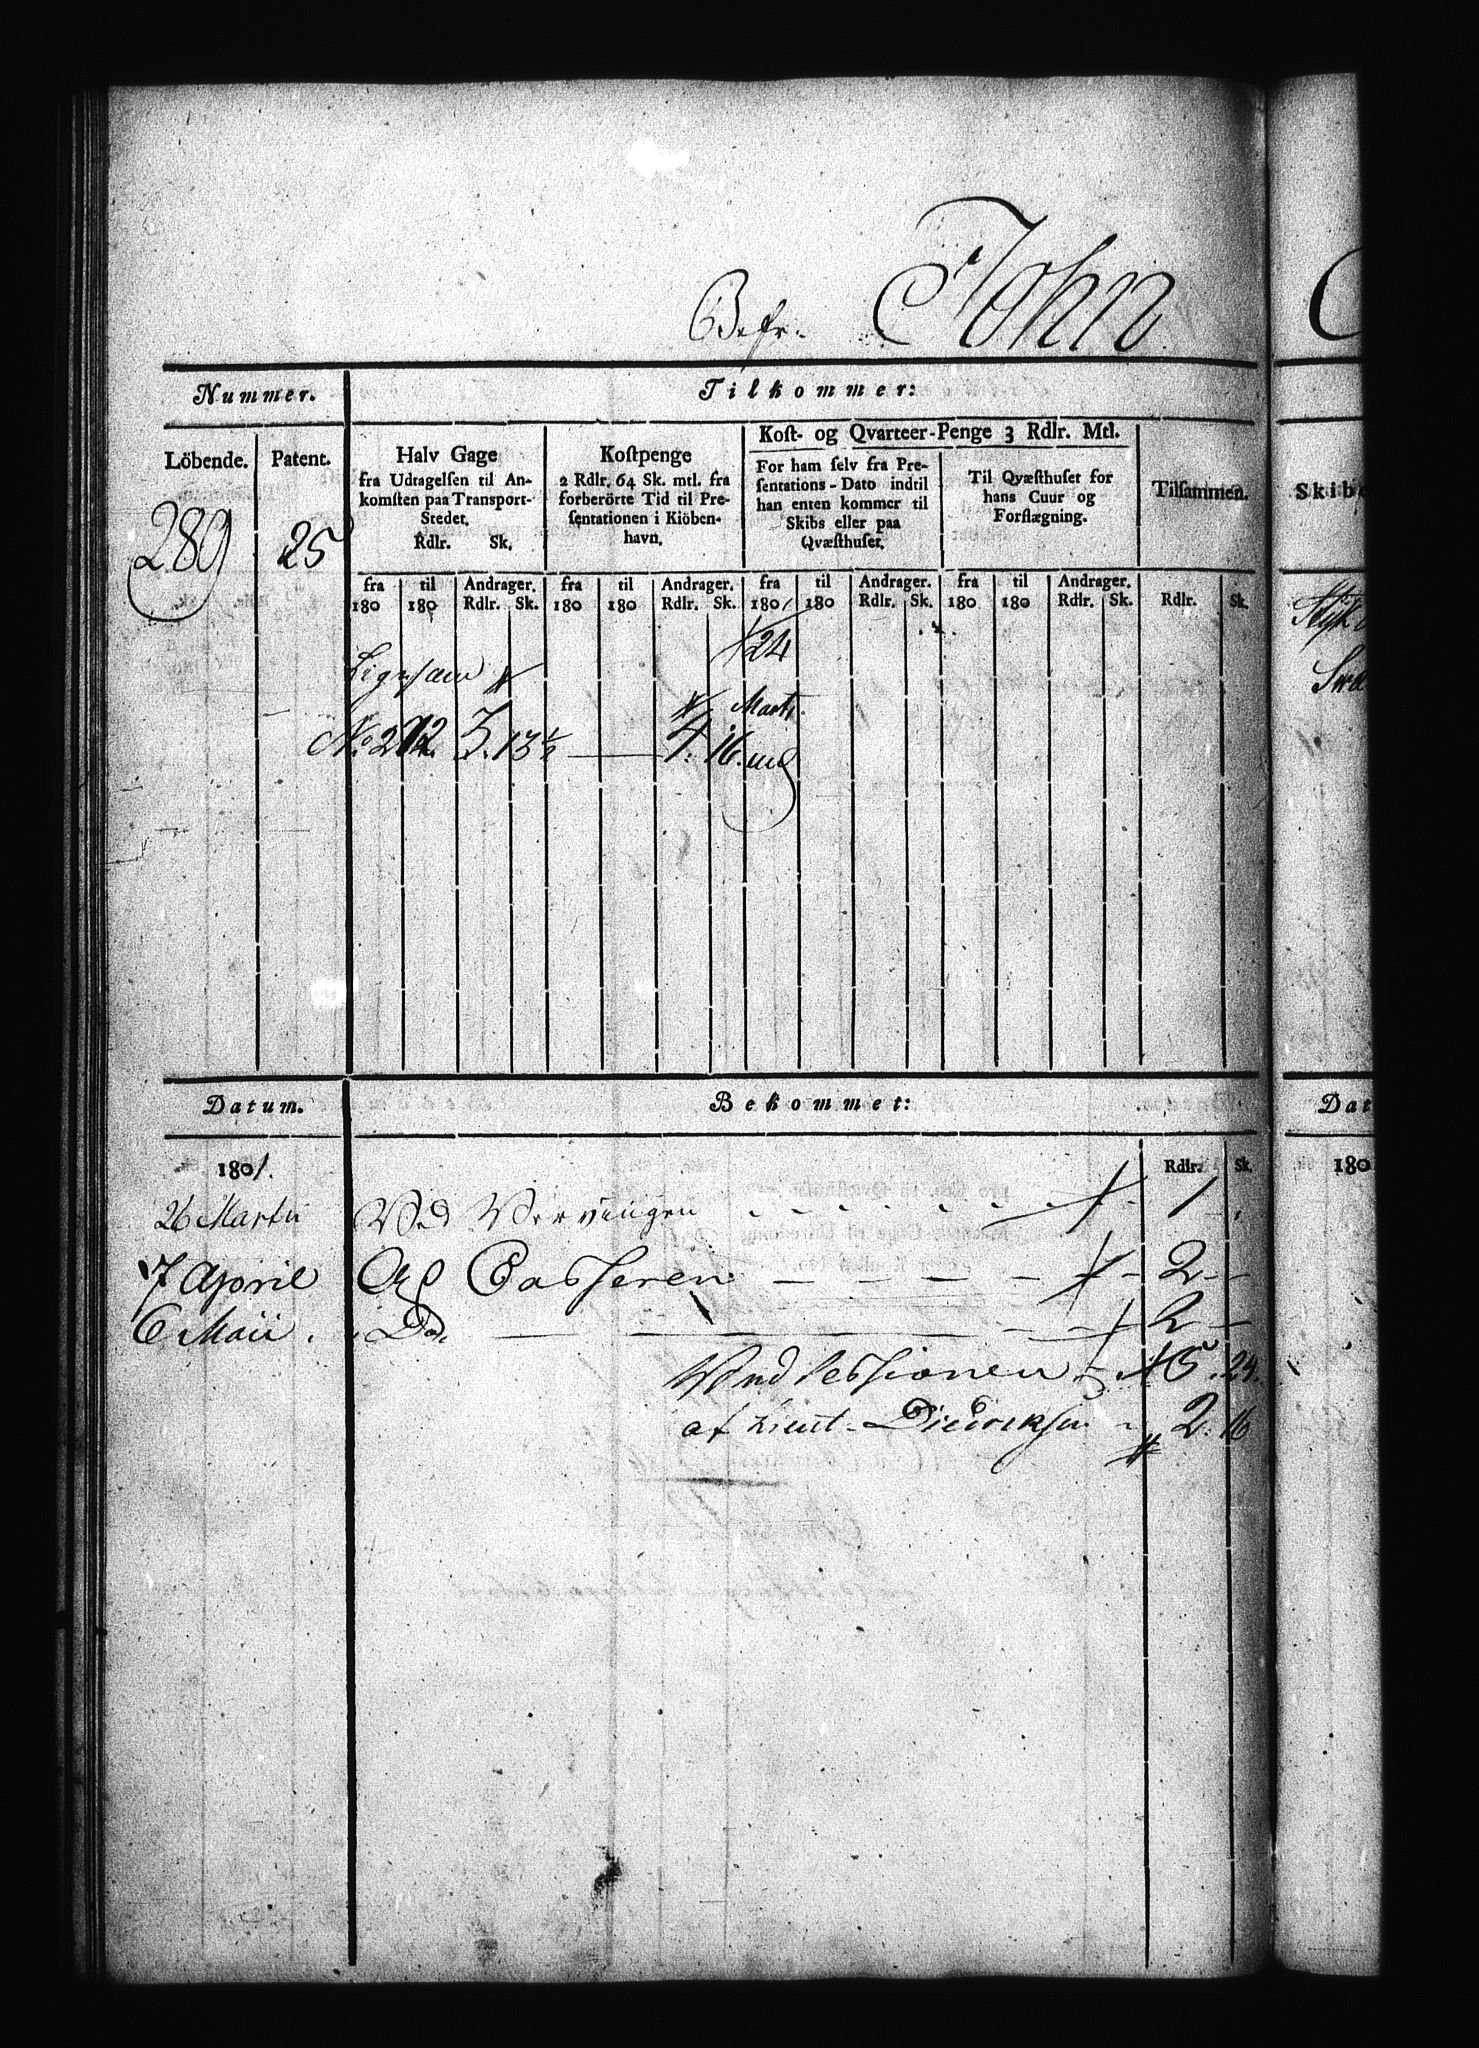 Befr. John
Nummer.
Tilkommer:
Löbende.
Patent.
Halv Gage
fra Udtagelsen til An-
komsten paa Transport-
Stedet.
Rdlr. Sk.
Kostpenge
2 Rdlr. 64 Sk. mtl. fra
forberörte Tid til Pre-
sentationen i Kiöben-
havn.
Kost- og Qvarteer-Penge 3 Rdlr. Mtl.
For ham selv fra Pre-
sentations-Dato indtil
han enten kommer til
Skibs eller paa
Qvæsthuset.
Til Qvæsthuset for
hans Cuur og
Forflægning.
Tilsammen.
280
25
fra til Andrager. fra til Andrager. fra til Andrager. fra til Andrager.
180 180 Rdlr. Sk. 180 180 Rdlr. Sk. 1801 180 Rdlr. Sk. 180 180 Rdlr. Sk. Rdlr. Sk.
24
Martz.
3. 13 1/2 4. 16.
Datum.
Bekommet:
1801.
Rdlr. Sk.
26 Martii Ved Vervingen 1
7 April Af Casseren 2
6 Maii. Do. 2
Ved Sessionen 5. 24.
af Lieut. Diedriksen 2. 16
Skibs
Dat
180